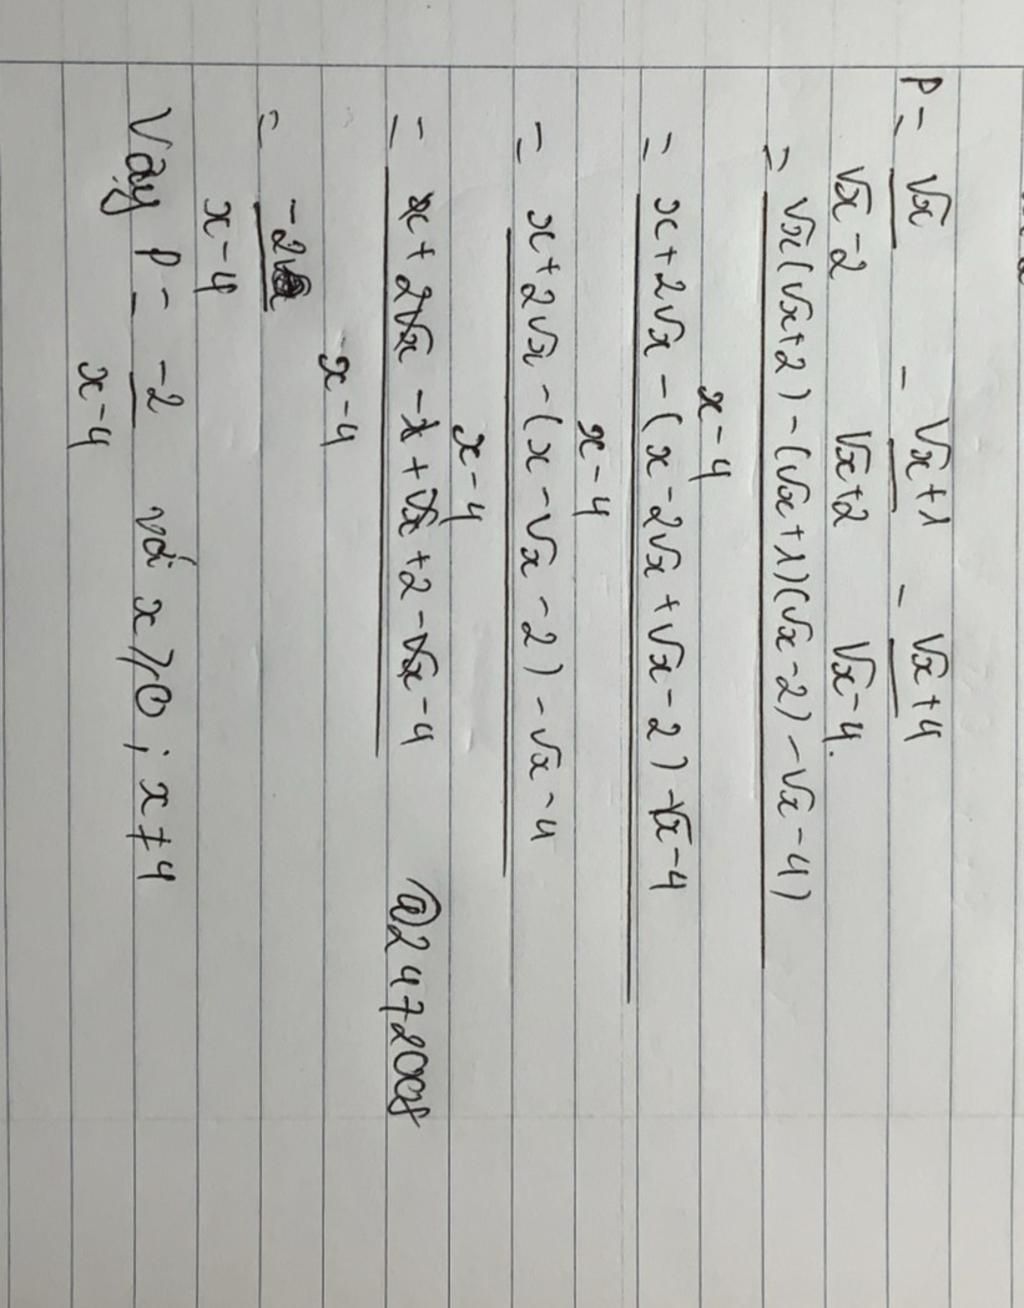 P = √x - √x+1 - √x+4
√x-2 √x+2 √x-4.
= √x(√x+2)-(√x+1)(√x-2)-√x-4)
x-4
= x+2√x-(x-2√x+√x-2)-√x-4
x-4
= x+2√x-(x-√x-2)-√x-4
x-4
= x+2√x-x+√x+2-√x-4
x-4 @2472008
= -2
x-4
Vậy P = -2 với x⩾0; x≠4
x-4